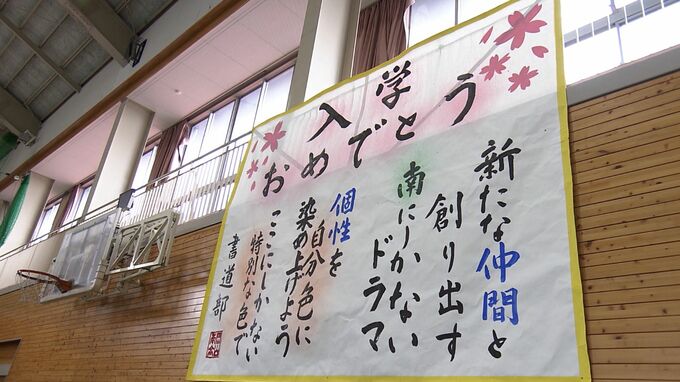 入学
おめでとう
新たな仲間と
創り出す
南にしかない
ドラマ
個性を
自分色に
染め上げよう
ここにしかない
特別な色で
書道部